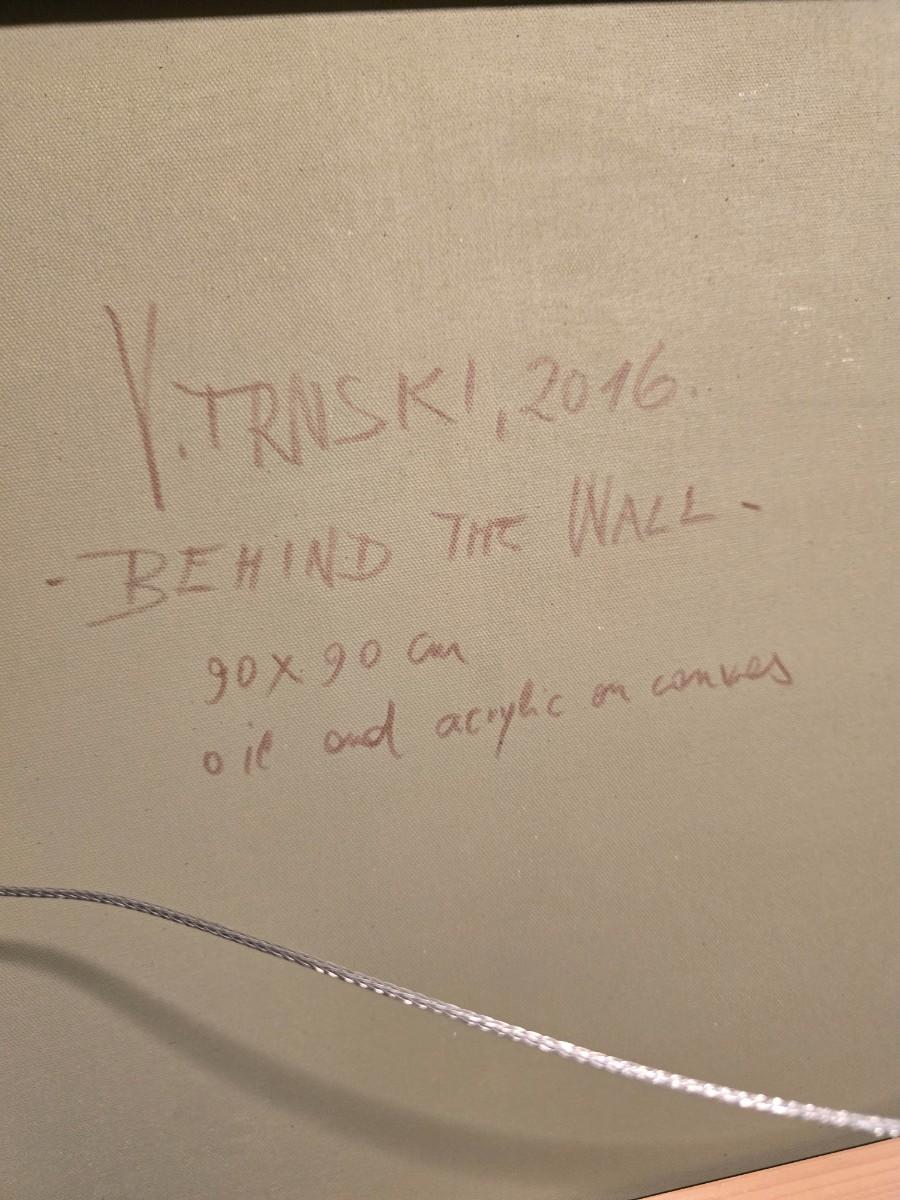 V.TRNSKI, 2016.
- BEHIND THE WALL -
90x90 cm
oil and acrylic on canvas